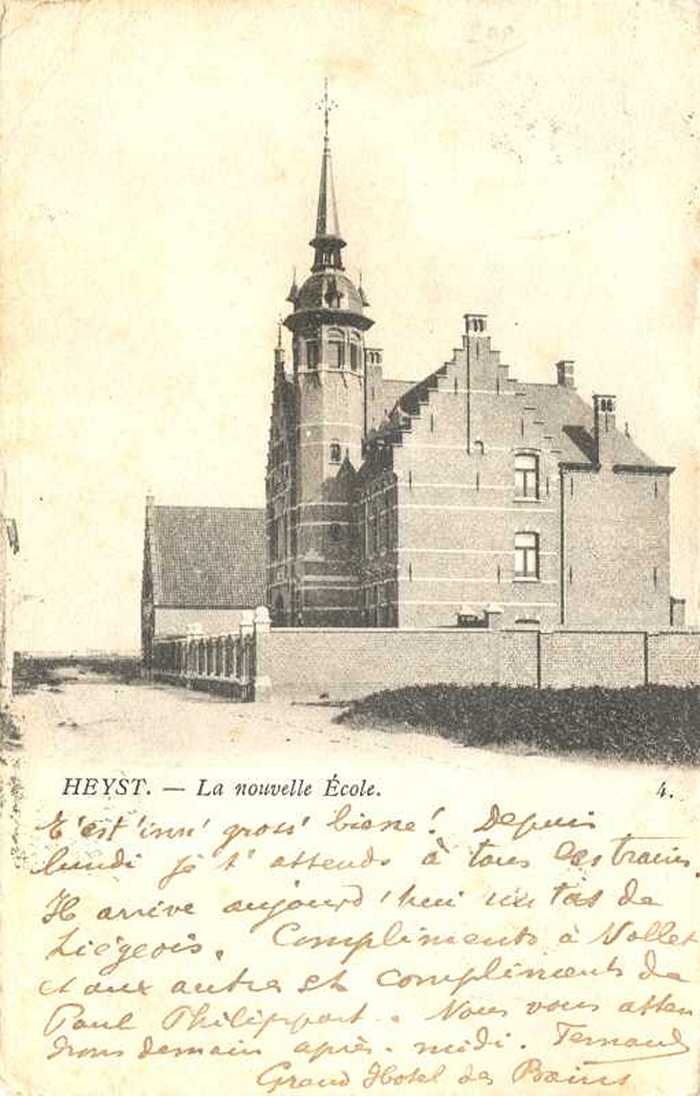 HEYST. — La nouvelle École. 4.
C'est 'inn' gross' biesse! Depuis
lundi je t'attends à tous les trains.
Il arrive aujourd'hui un tas de
Liégeois. Compliments à Nollet
et aux autres et compliments de
Paul Philippart. Nous vous atten
drons demain après-midi. Fernand
Grand Hotel des Bains